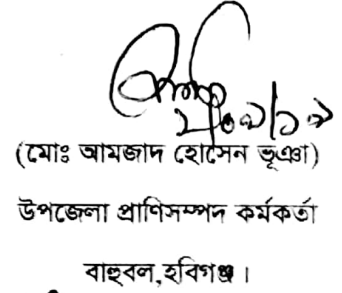 (মোঃ আমজাদ হোসেন ভূঞা)
উপজেলা প্রাণিসম্পদ কর্মকর্তা
বাহুবল,হবিগঞ্জ।